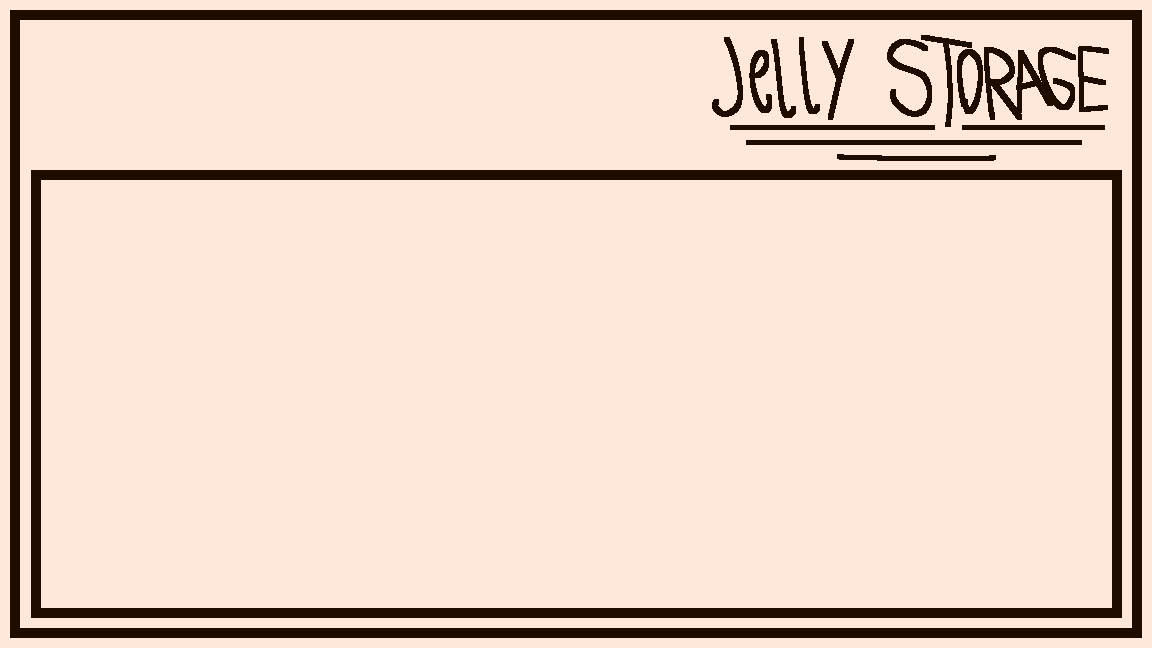 JellY STORAGE